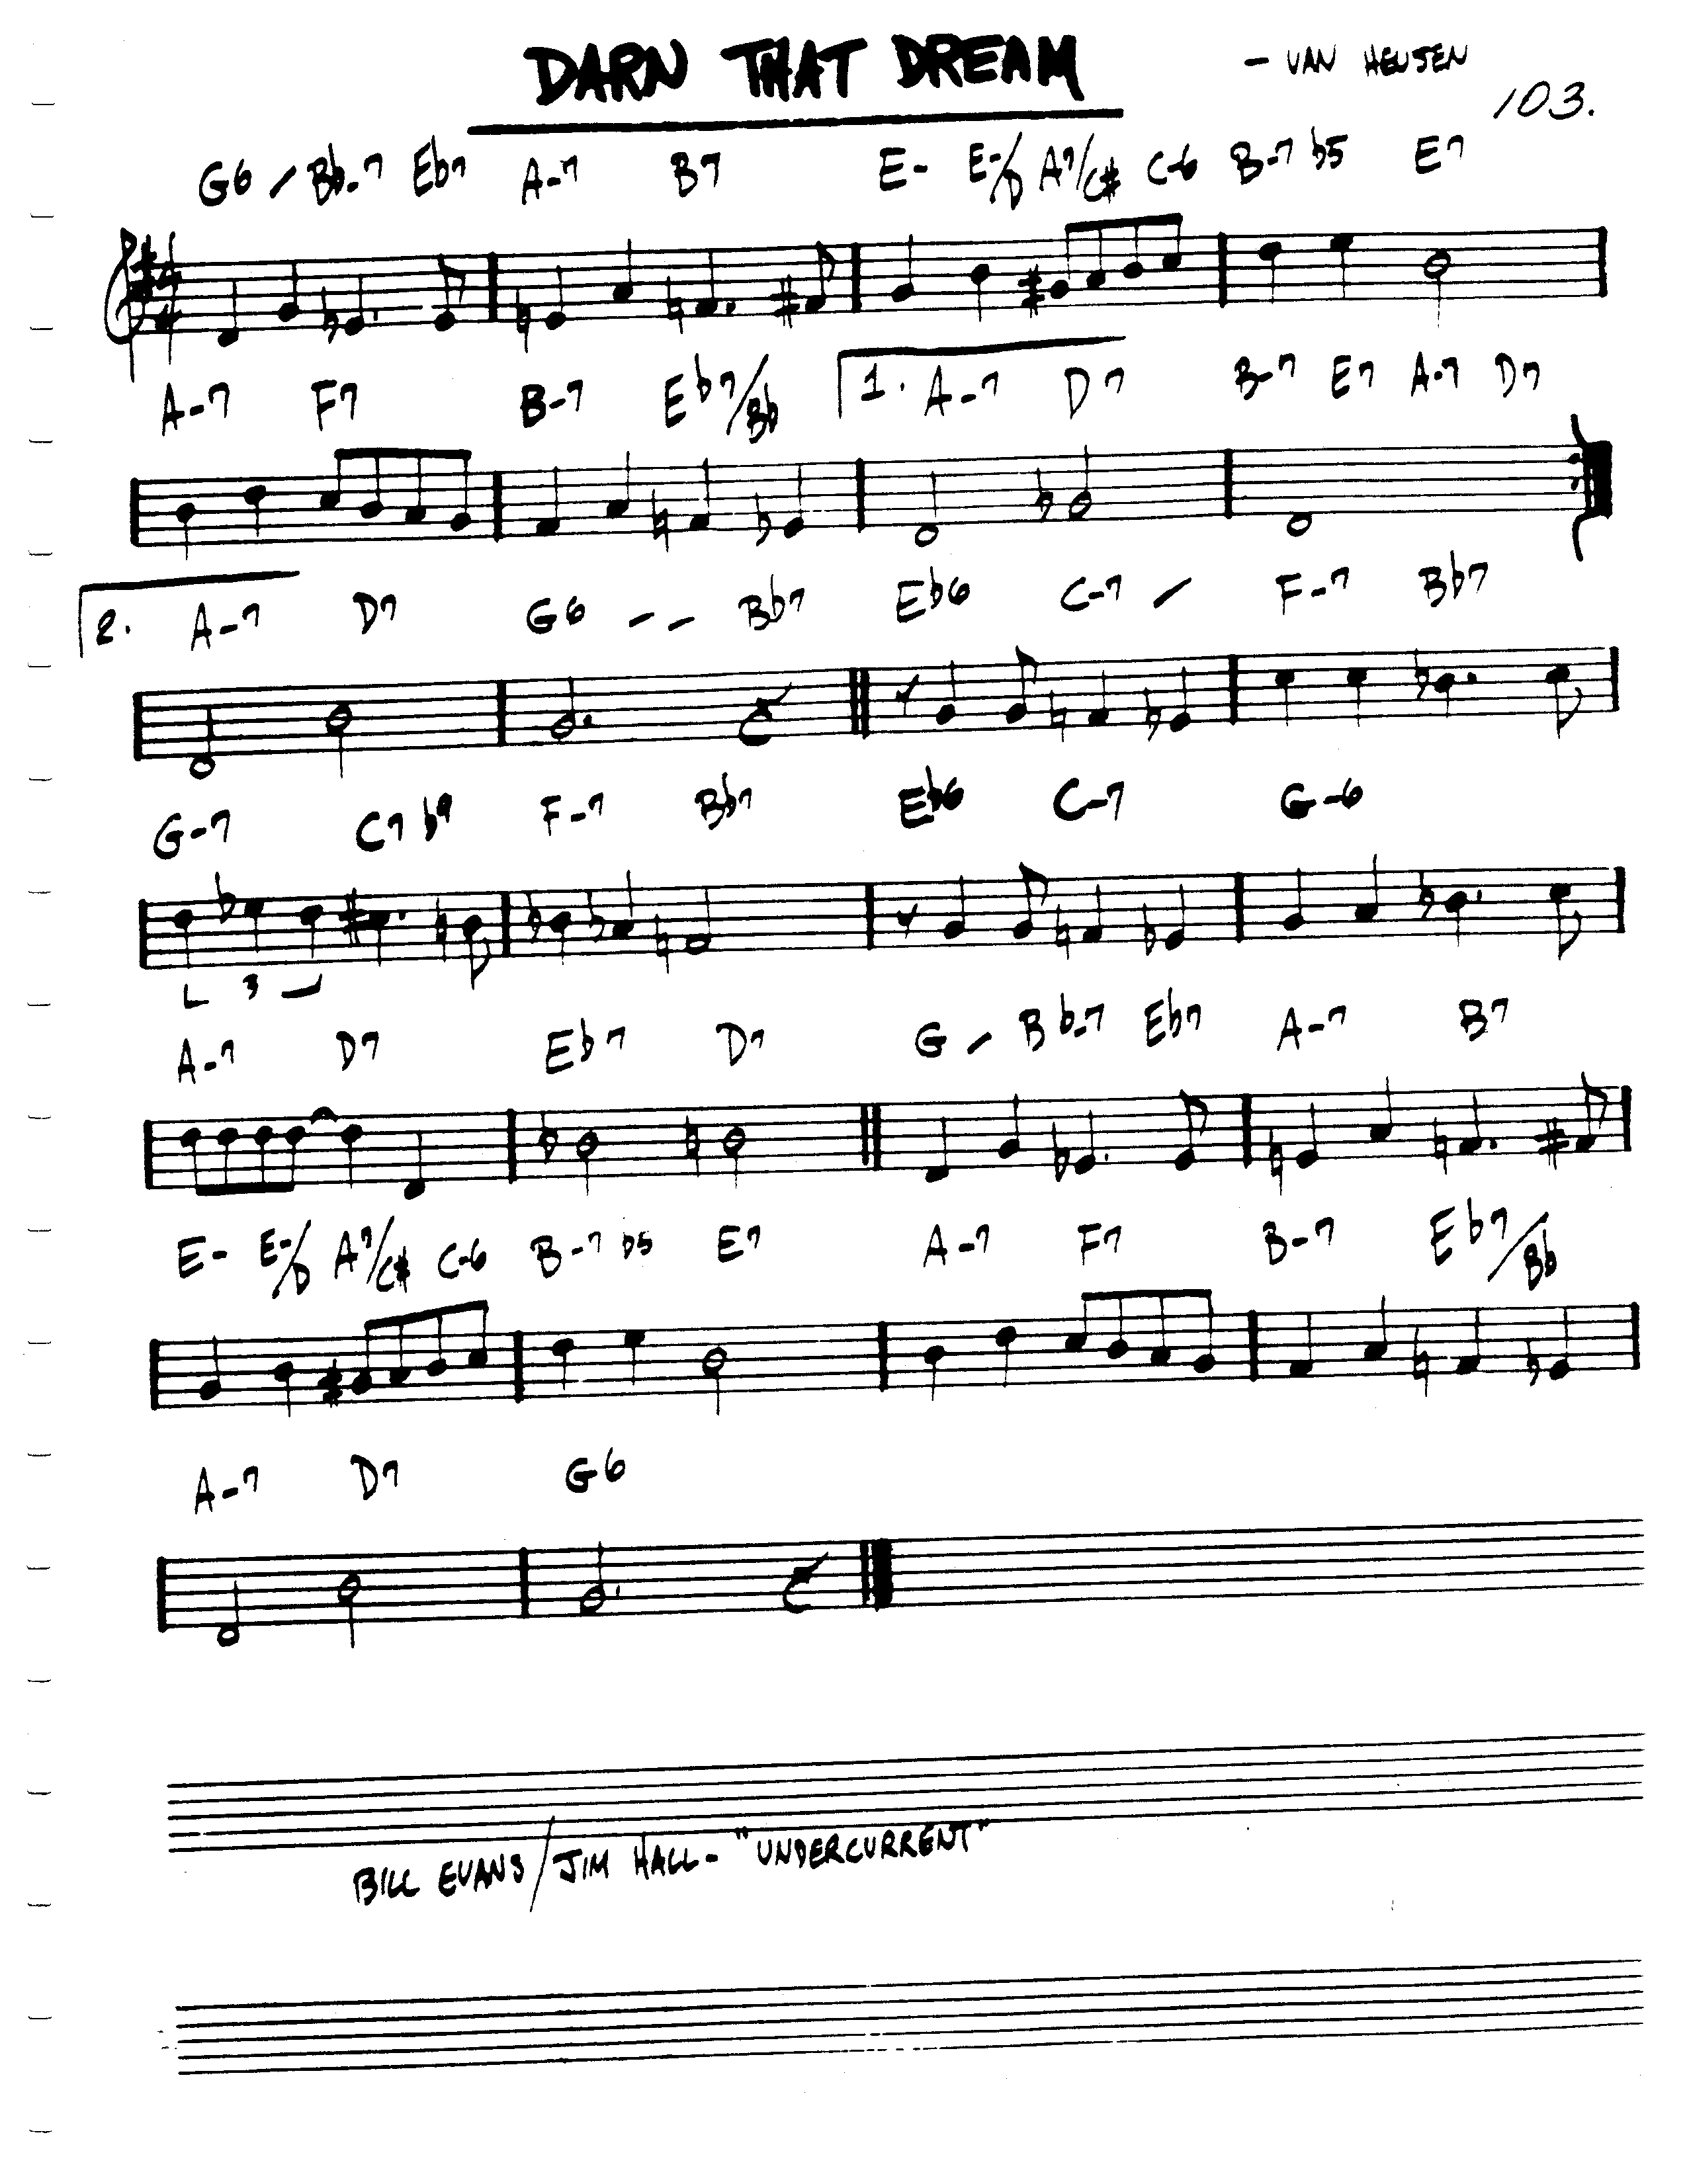 DARN THAT DREAM
- VAN HEUSEN
103.
G6 - Bb-7 Eb7 A-7 B7 E- E-/D A7/C# C-6 B-7 b5 E7
A-7 F7 B-7 Eb7/Bb 1. A-7 D7 B-7 E7 A-7 D7
2. A-7 D7 G6 - - Bb7 Eb6 C-7 - F-7 Bb7
G-7 C7 b9 F-7 Bb7 Eb6 C-7 G-6
3
A-7 D7 Eb7 D7 G - Bb-7 Eb7 A-7 B7
E- E-/D A7/C# C-6 B-7 b5 E7 A-7 F7 B-7 Eb7/Bb
A-7 D7 G6
BILL EVANS/JIM HALL - "UNDERCURRENT"